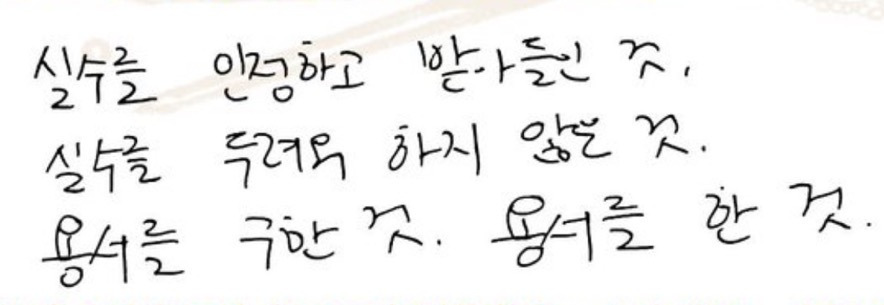 실수를 인정하고 받아들인 것.
실수를 두려워 하지 않은 것.
용서를 구한 것. 용서를 한 것.